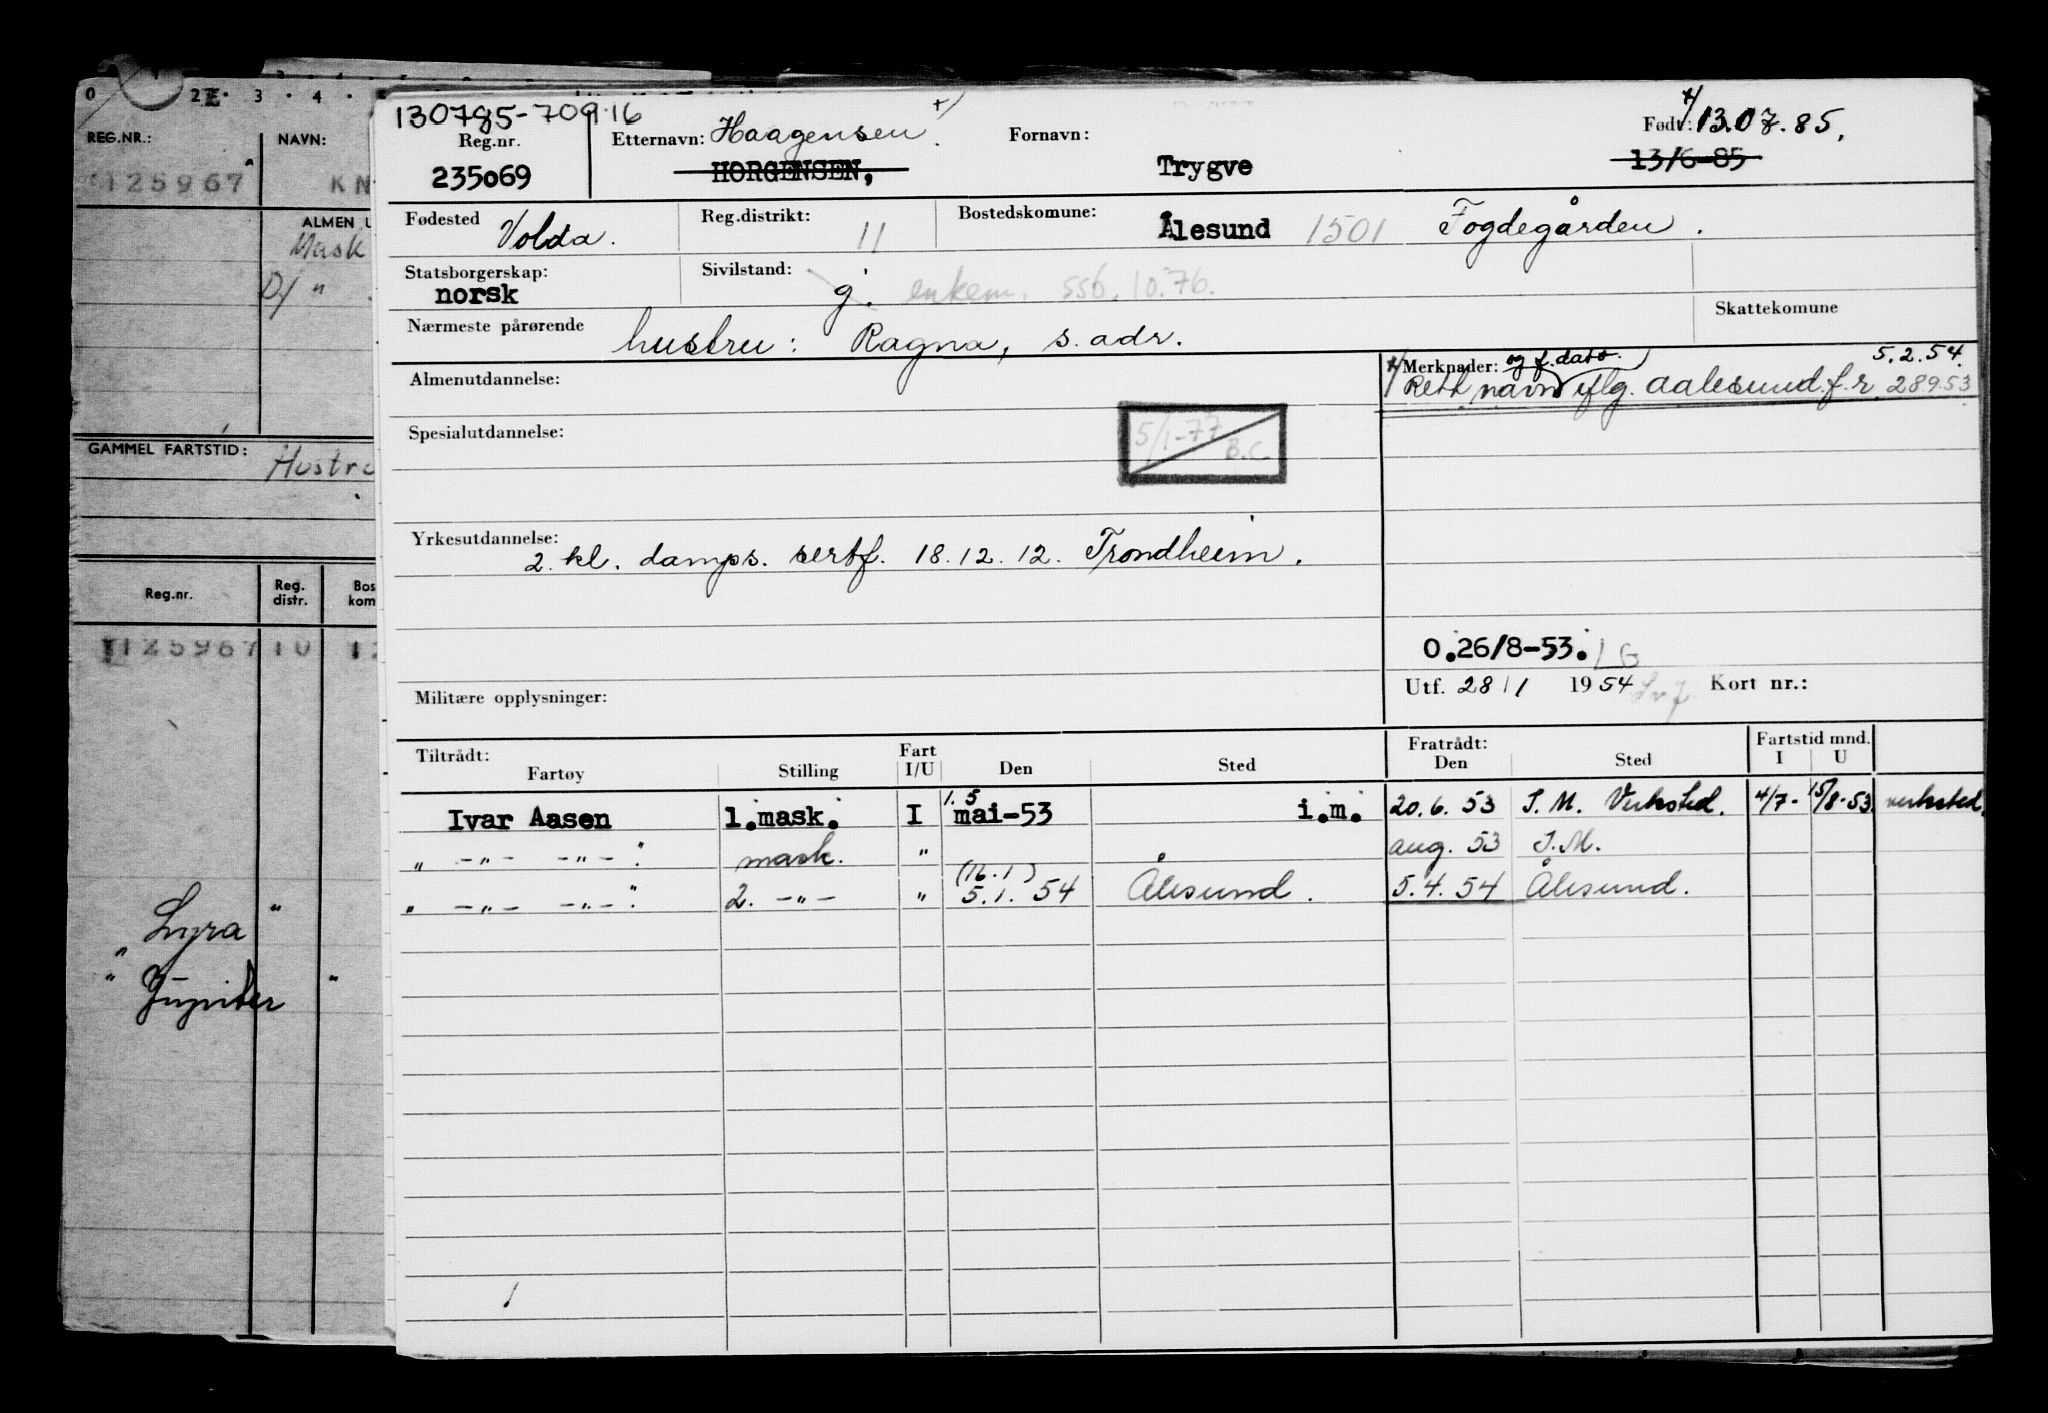 0 · 2 · 3 · 4 ·
REG.NR.:
NAVN:
125967
KN
ALMEN U
Mask
D/ "
GAMMEL FARTSTID:
Hustru
Reg.nr.
Reg. distr.
Bos kom
125967 10 12
Lyra "
" Jupiter "
130785-709.16
Reg.nr.
235069
Etternavn: Haagensen x/
HORGENSEN,
Fornavn:
Trygve
Født: x/ 13.07.85.
13/6-85
Fødested Volda.
Reg.distrikt: 11
Bostedskomune: Ålesund 1501 Fogdegården.
Statsborgerskap:
norsk
Sivilstand: g. enkem. ssb. 10.76.
Skattekomune
Nærmeste pårørende hustru: Ragna, s. adr.
Almenutdannelse:
Merknader: og f.dato. 5.2.54
x/ Rett navn iflg. Aalesund f.r. 28953
Spesialutdannelse:
5/1-77 B.C.
Yrkesutdannelse:
2. kl. damps. sertf. 18.12.12. Trondheim.
O.26/8-53. LG
Militære opplysninger:
Utf. 28/1 1954 Kort nr.:
Tiltrådt:
Fartøy Stilling Fart I/U Den Sted
Fratrådt:
Den Sted
Fartstid mnd.
I U
Ivar Aasen 1.mask. I 1.5 mai-53 i.m. 20.6.53 I.M. Verksted. 4/7- 15/8-53 verksted.
" -"- -"-. mask. " aug. 53 I.M.
" -"- -"-. 2. -"- " (16.1) 5.1.54 Ålesund. 5.4.54 Ålesund.